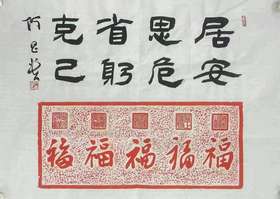 居安
思危
省躬
克己
福福福福福